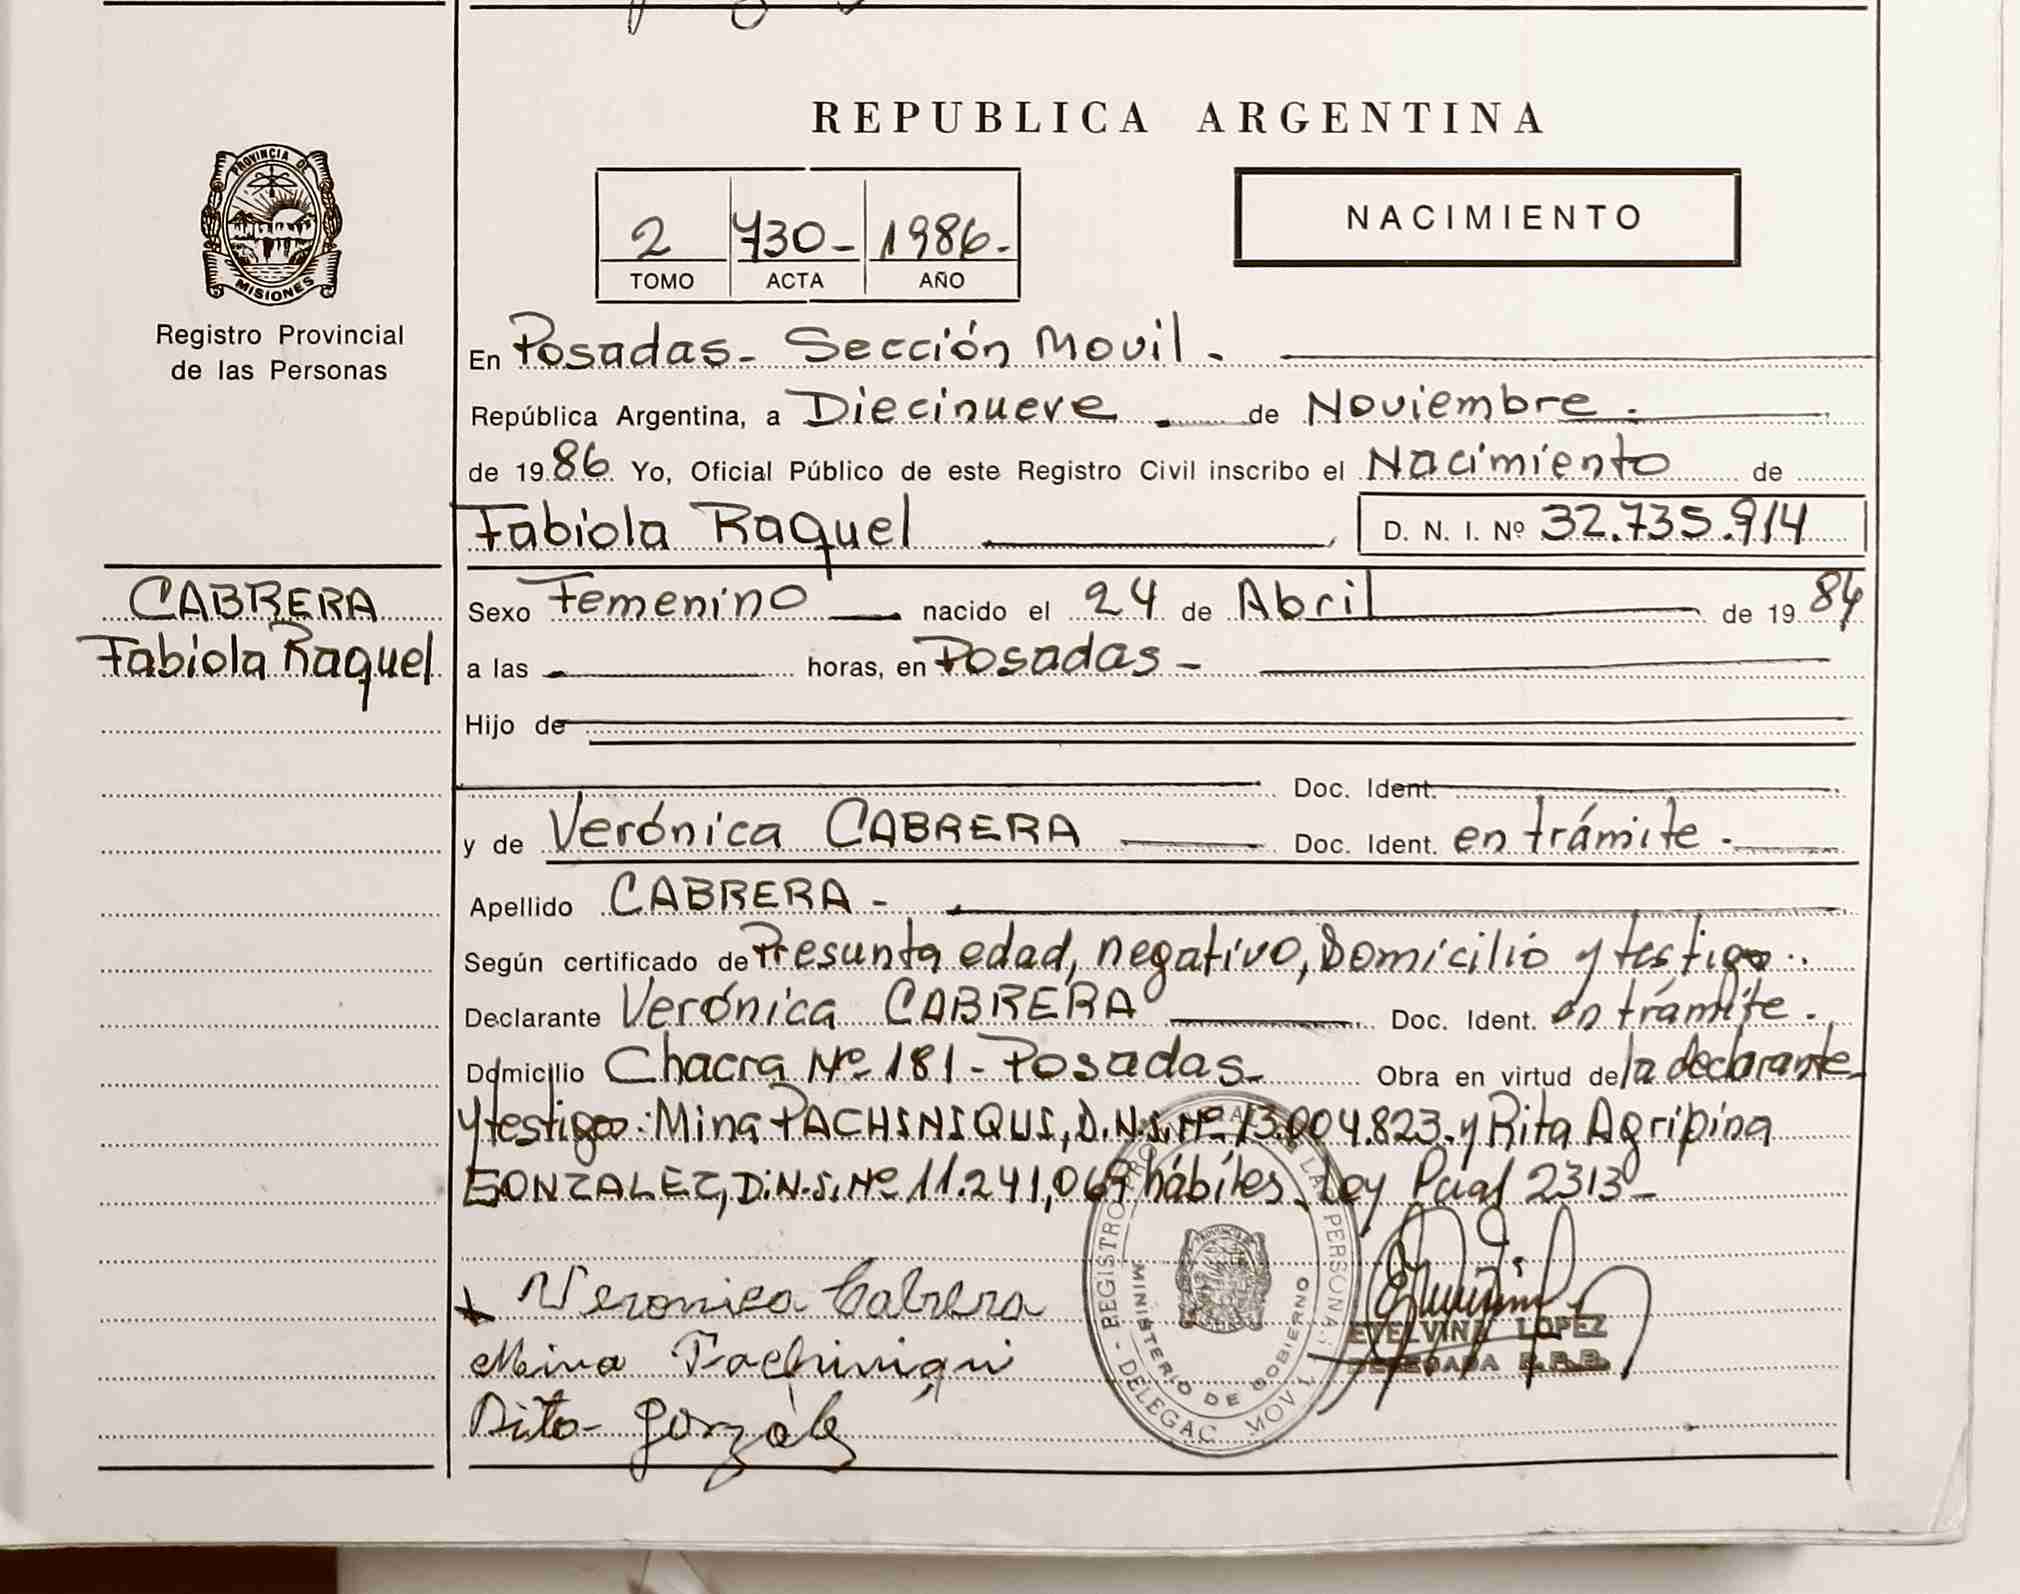 REPUBLICA ARGENTINA
PROVINCIA DE
MISIONES
Registro Provincial
de las Personas
2 730- 1986-
TOMO ACTA AÑO
NACIMIENTO
En Posadas- Sección Movil.
República Argentina, a Diecinueve de Noviembre.
de 1986 Yo, Oficial Público de este Registro Civil inscribo el Nacimiento de
Fabiola Raquel D. N. I. Nº 32.735.914
CABRERA
Fabiola Raquel
Sexo Femenino nacido el 24 de Abril de 1984
a las horas, en Posadas -
Hijo de
Doc. Ident.
y de Verónica CABRERA Doc. Ident. en trámite.
Apellido CABRERA -
Según certificado de Presunta edad, negativo, Domicilio y testigo..
Declarante Verónica CABRERA Doc. Ident. en trámite.
Domicilio Chacra Nº 181 - Posadas - Obra en virtud de la declarante
y testigos: Mina PACHINIQUI, D.N.I. Nº 13.004.823. y Rita Agripina
GONZALEZ, D.N.I. Nº 11.241,069 hábiles. Ley 2313-
Veronica Cabrera
Mina Pachiniqui
Rita González
REGISTRO LAS PERSONAS
MINISTERIO DE GOBIERNO
- DELEGAC. MOVIL
ETELVINA LOPEZ
DELEGADA